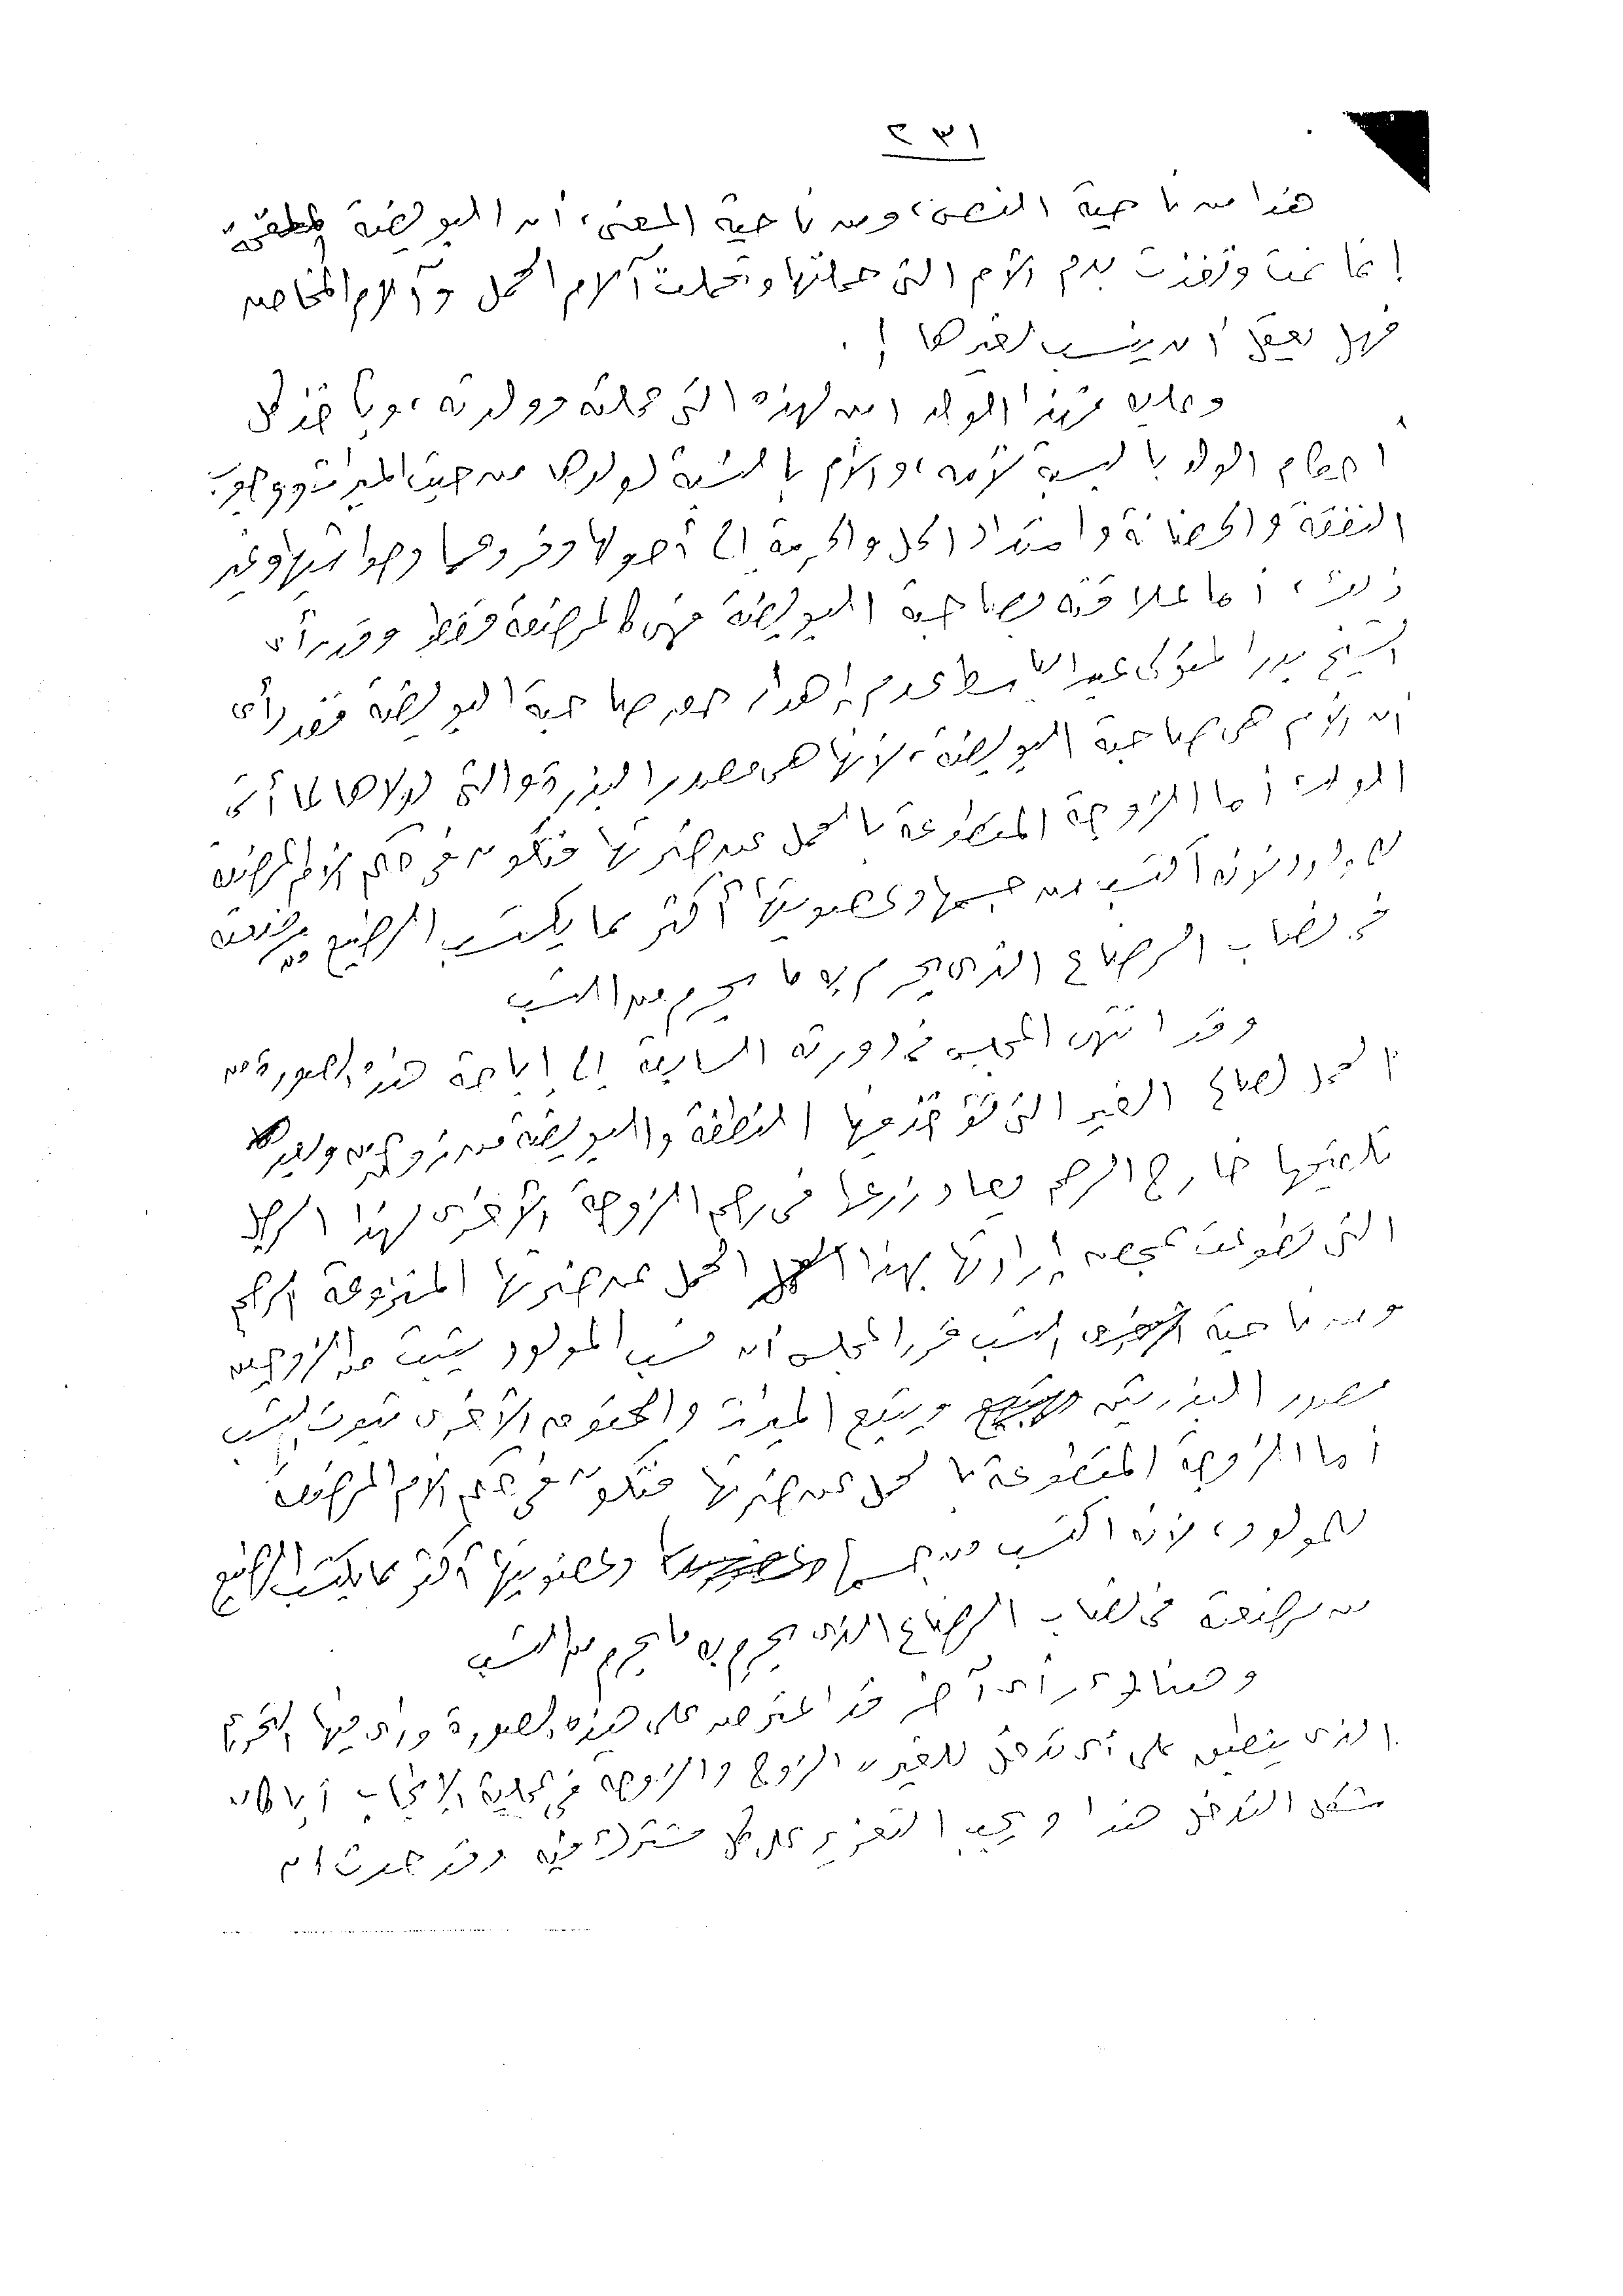 ٢٣١
هذا من ناحية النص، ومن ناحية المعنى، أن البويضة الملقحة
إنما نمت وتغذت بدم الأم التى حملتها وتحملت آلام الحمل وآلام المخاض
فهل يعقل أن ينسب لغيرها !.
وعليه فهذا الولد ابن لهذه التى حملته وولدته، ويأخذ كل
أحكام الولد بالنسبة لأمه، والأم بالنسبة لولدها من حيث الميراث ووجوب
النفقة والحضانة وامتداد الحل والحرمة إلى أصولها وفروعها وحواشيها وغير
ذلك، أما علاقته بصاحبة البويضة فهى كالمرضعة فقط وقد رأى
الشيخ بدر المتولى عبد الباسط عدم إهدار حق صاحبة البويضة فقد رأى
أن الأم هى صاحبة البويضة، لأنها هى مصدر البذرة والتى لولاها لما أتى
الولد، أما الزوجة المتطوعة بالحمل عن ضرتها فتكون فى حكم الأم المرضعة
للمولود لأنه اكتسب من جسمها وعضويتها أكثر مما يكتسب الرضيع من مرضعته
فى نصاب الرضاع الذى يحرم به ما يحرم من النسب
وقد انتهى المجلس فى دورته السابعة إلى إباحة هذه الصورة من
الحمل لصالح الغير التى تؤخذ فيها النطفة والبويضة من زوجين وبعد
تلقيحها خارج الرحم يعاد زرعها فى رحم الزوجة الأخرى لهذا الرجل
التى تطوعت بمحض إرادتها بهذا الحمل عن ضرتها المنزوعة الرحم
ومن ناحية النسب قرر المجلس أن نسب المولود يثبت من الزوجين
مصدر البذرتين ويتبع الميراث والحقوق الأخرى ثبوت النسب
أما الزوجة المتطوعة بالحمل عن ضرتها فتكون فى حكم الأم المرضعة
للمولود، لأنه اكتسب من جسمها وعضويتها أكثر مما يكتسب الرضيع
من مرضعته فى نصاب الرضاع الذى يحرم به ما يحرم من النسب
وهناك رأى آخر قد اعترض على هذه الصورة ورأى فيها التحريم
الذى ينطبق على أى تدخل للغير الزوج والزوجة فى عملية الإنجاب أيا كان
شكل التدخل هذا ويجب التعزير على كل مشترك فيه وقد حدث أن